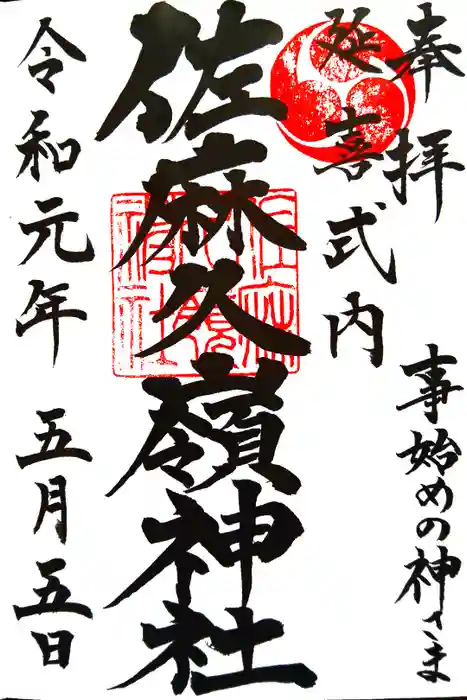 奉拝
事始めの神さま
延喜式内
佐麻久嶺神社
令和元年 五月五日